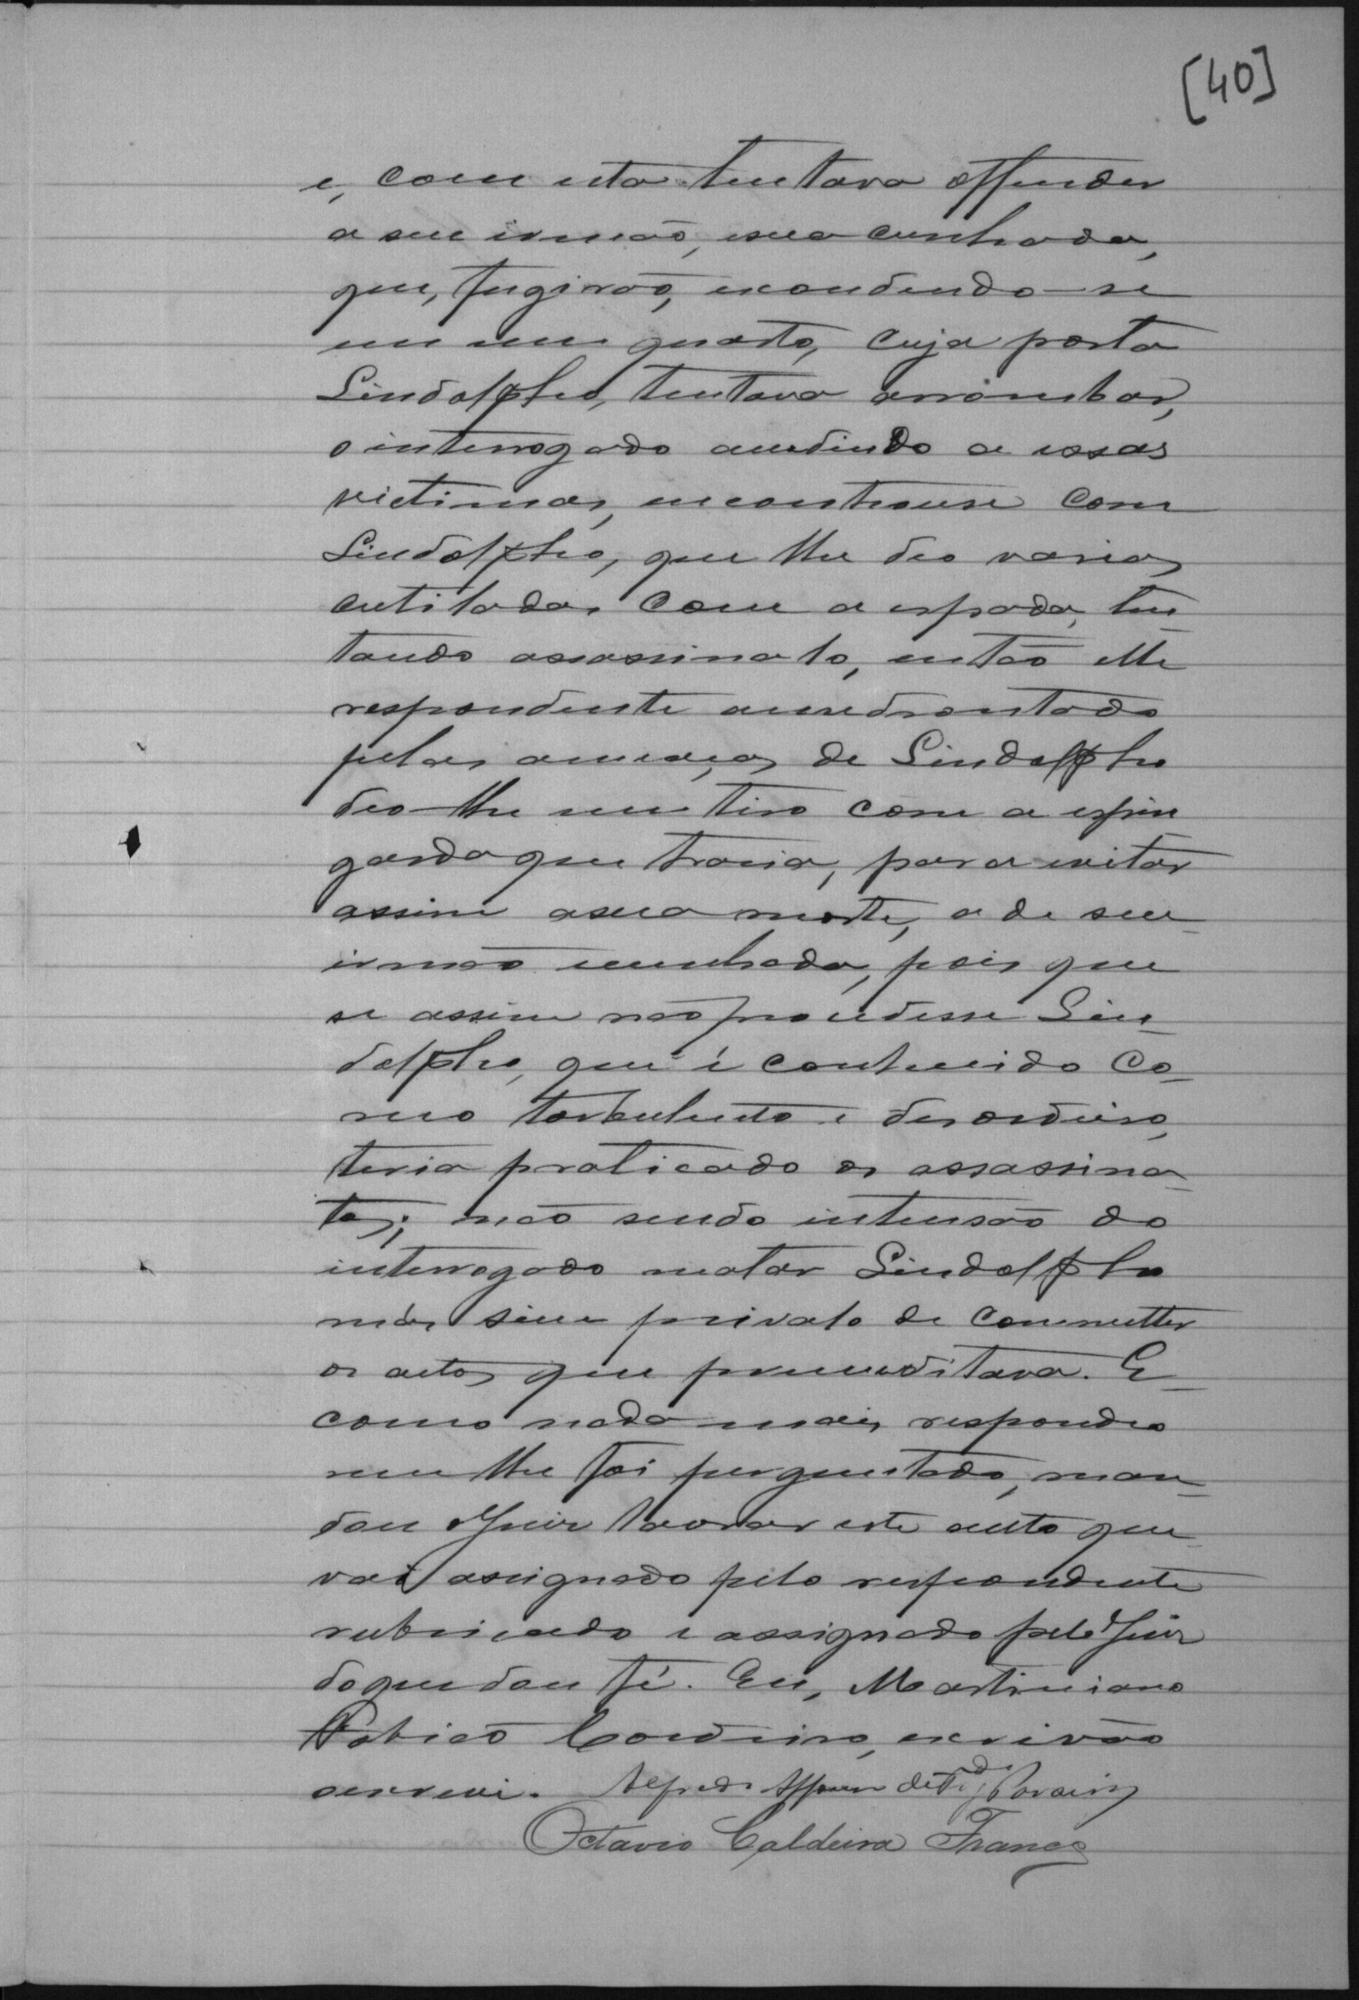 [40]
e, com esta tentava offender
a seu irmão, e sua cunhada,
que, fugirão, escondendo-se
em um quarto, cuja porta
Lindolpho, tentava arrombar,
o interrogado acudindo a essas
victimas, encontrou-se com
Lindolpho, que lhe deo varias
cutiladas com a espada, ten-
tando assassinal-o, então elle
respondente amedrontado
pelas ameaças de Lindolpho
deo-lhe um tiro com a espin
garda que trazia, para evitar
assim a sua morte, a de seu
irmão e cunhada, pois que
se assim não procedesse Lin-
dolpho, que é conhecido co-
mo turbulento e desordeiro,
teria praticado os assassina-
tos; não sendo intensão do
interrogado matar Lindolpho
mas sim prival-o de commetter
os actos que premeditava. E
como nada mais respondeo
nem lhe foi perguntado, man-
dou o Juiz lavrar este auto que
vai assignado pelo respondente
rubricado e assignado pelo Juiz
do que dou fé. Eu, Martiniano
Cordeiro, escrivão
escrevi. Alfredo
Octavio Caldeira Franco